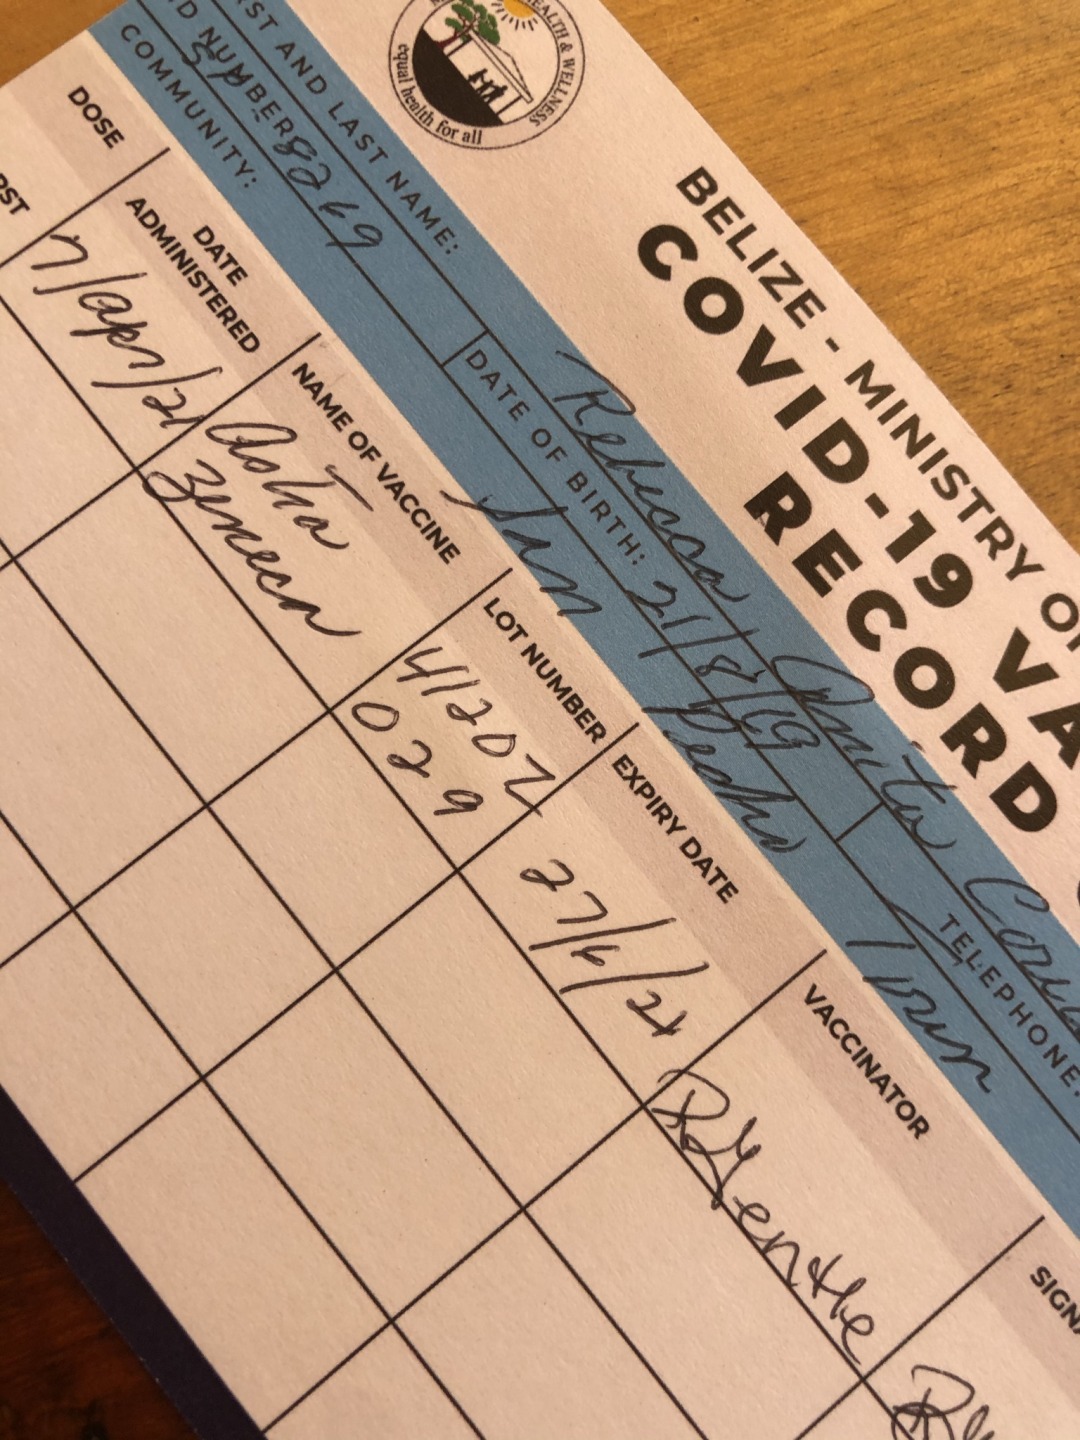 HEALTH & WELLNESS
equal health for all
BELIZE - MINISTRY OF
COVID-19 VA
RECORD
ST AND LAST NAME: Rebecca Anita
ID NUMBER: 8269 DATE OF BIRTH: 21/8/69 TELEPHONE:
COMMUNITY: San Pedro Town
DOSE DATE ADMINISTERED NAME OF VACCINE LOT NUMBER EXPIRY DATE VACCINATOR SIGNA
RST 7/apr/21 Astra 4120Z 27/6/21
Zeneca 029